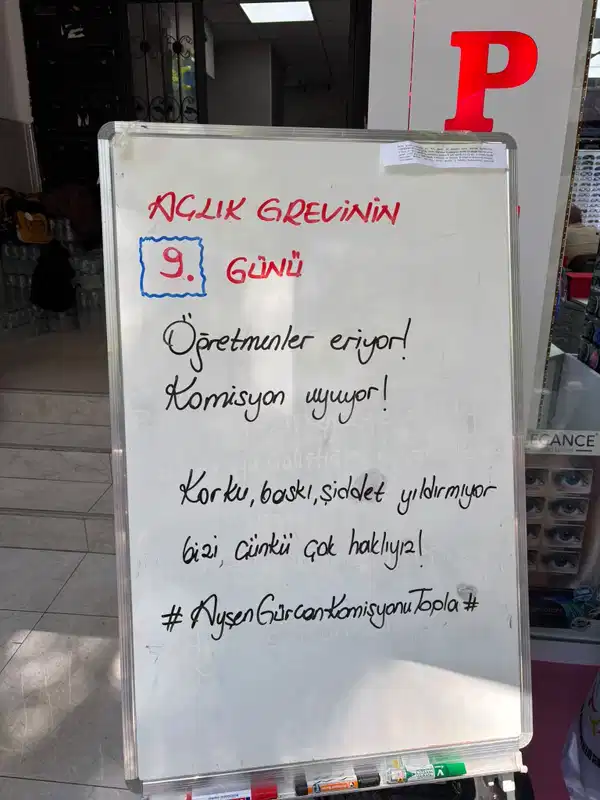 P
AÇLIK GREVİNİN
9. GÜNÜ
Öğretmenler eriyor!
Komisyon uyuyor!
Korku, baskı, şiddet yıldırmıyor
bizi, çünkü çok haklıyız!
#AyşenGürcanKomisyonuTopla#
EGANCE